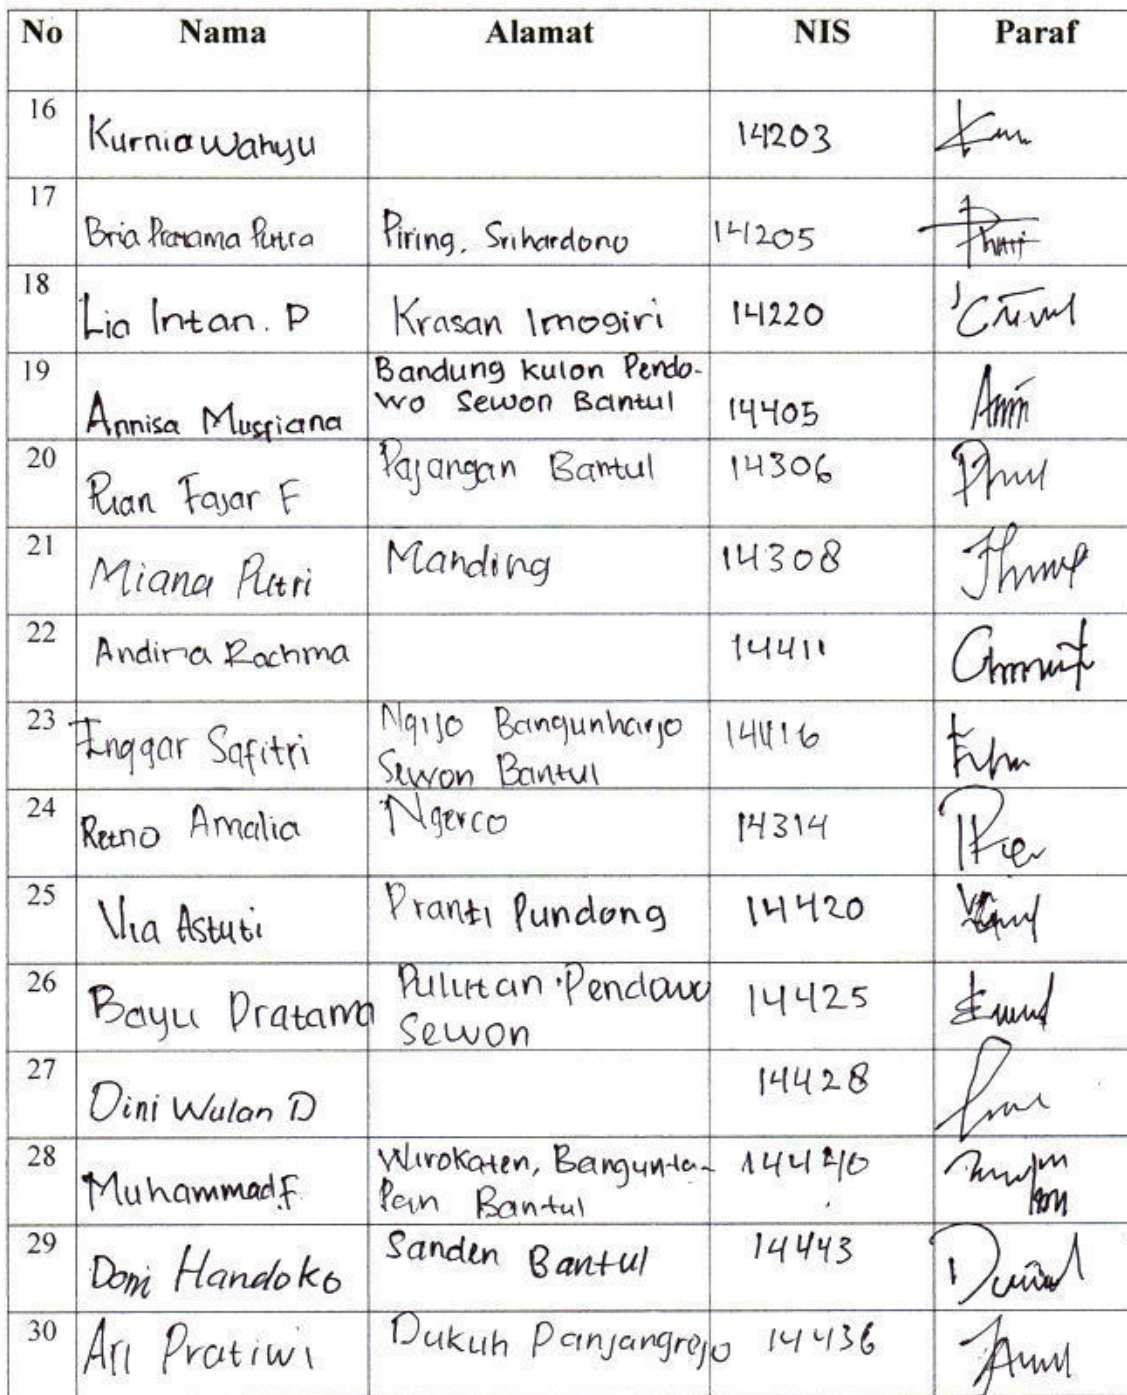 No Nama Alamat NIS Paraf
16 Kurnia Wahyu 14203
17 Bria Pratama Putra Piring, Srihardono 14205
18 Lia Intan. P Krasan Imogiri 14220
19 Annisa Musfiana Bandung kulon Pendo-
wo Sewon Bantul 14405
20 Rian Fajar F Pajangan Bantul 14306
21 Miana Putri Manding 14308
22 Andira Rochma 14411
23 Enggar Safitri Ngijo Bangunharjo
Sewon Bantul 14416
24 Retno Amalia Ngerco 14314
25 Via Astuti Pranti Pundong 14420
26 Bayu Pratama Pulutan Pendowo
Sewon 14425
27 Dini Wulan D 14428
28 Muhammad.F Wirokaten, Bangunta-
pan Bantul 14440
29 Doni Handoko Sanden Bantul 14443
30 Ari Pratiwi Dukuh Panjangrejo 14436